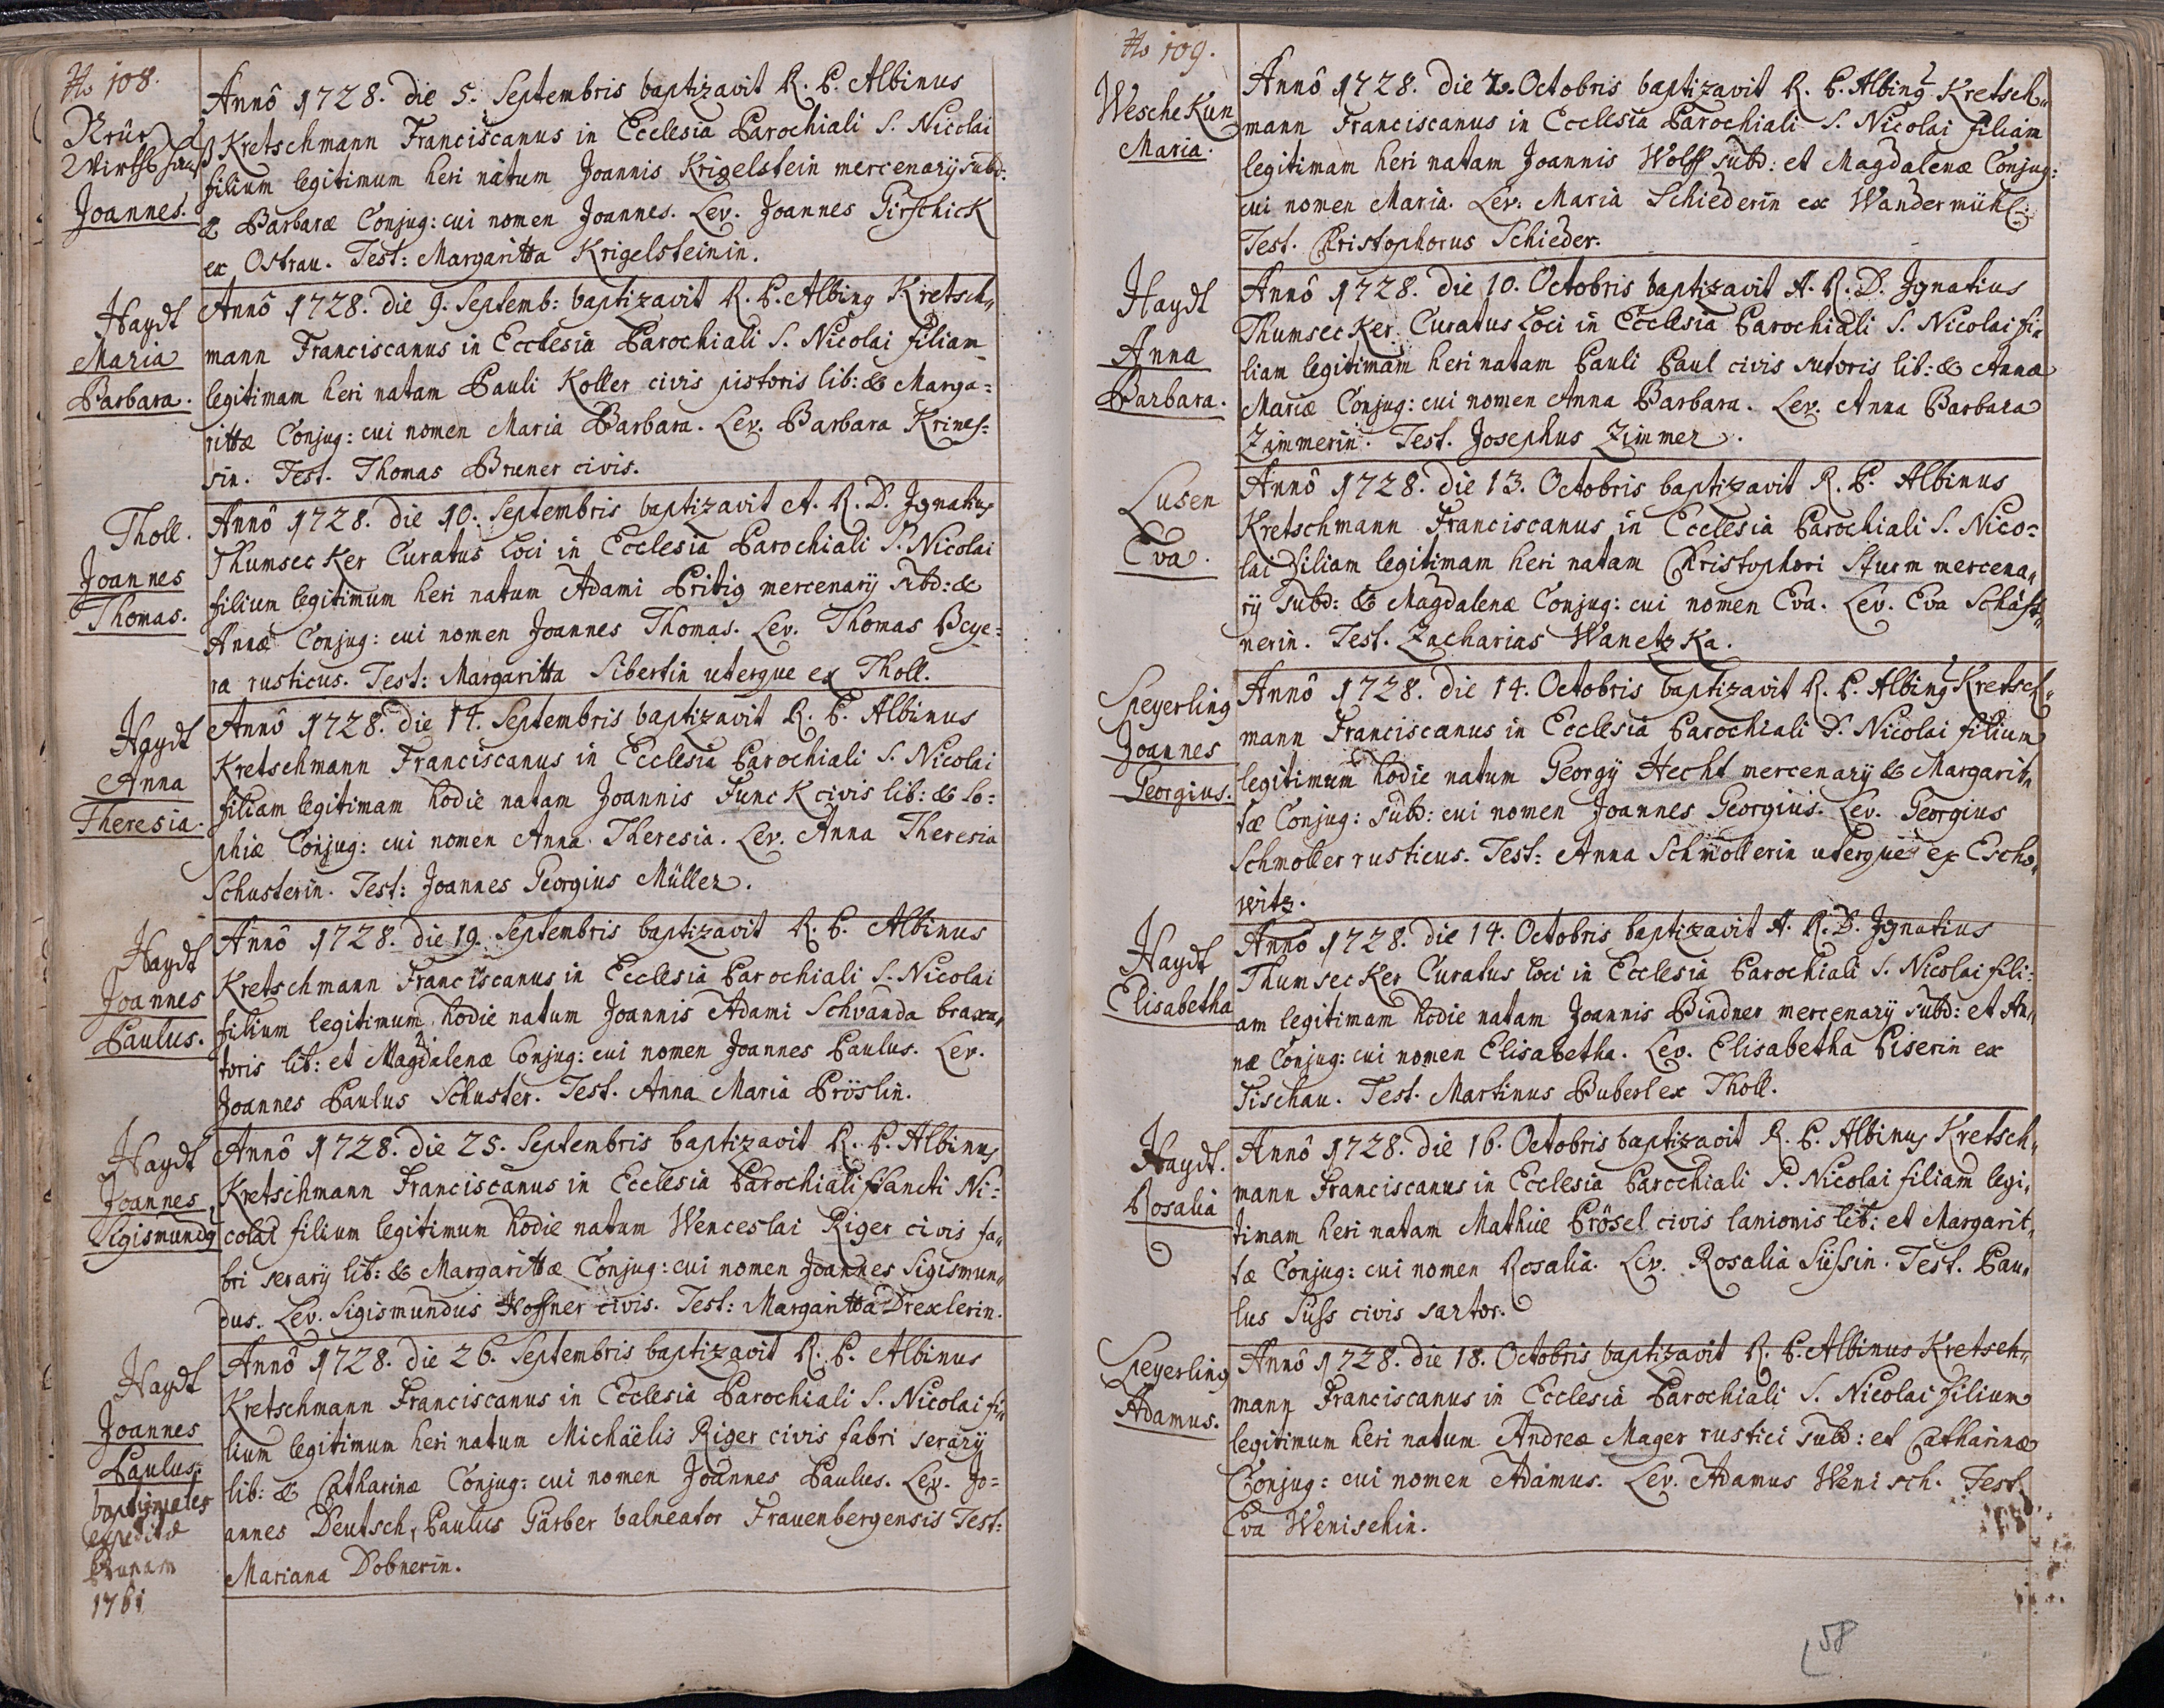 No 108.
Wirthshauß
Joannes.
Annô 1728. die 5. Septembris baptizavit R. P. Albinus
Kretschmann Franciscanus in Ecclesia Parochiali S. Nicolai
filium legitimum heri natum Joannis Krigelstein mercenarij subd:
& Barbaræ Conjug: cui nomen Joannes. Lev. Joannes Pirschick
ex Ostrau. Test: Margaritta Krigelsteinin.
Haydt
Maria
Barbara.
Annô 1728. die 9. Septemb: baptizavit R. P. Albinq Kretsch„
mann Franciscanus in Ecclesia Parochiali S. Nicolai filiam
legitimam heri natam Pauli Koller civis pistoris lib: & Marga=
rittæ Conjug: cui nomen Maria Barbara. Lev. Barbara Krines=
sin. Test. Thomas Bruner civis.
Tholl.
Joannes
Thomas.
Annô 1728. die 10. Septembris baptizavit A. R. D. Ignatius
Thumsecker Curatus Loci in Ecclesia Parochiali S. Nicolai
filium legitimum heri natum Adami Pritig mercenarij subd: &
Annæ Conjug: cui nomen Joannes Thomas. Lev. Thomas Beye=
ra rusticus. Test: Margaritta Sibertin uterque ex Tholl.
Haydt
Anna
Theresia.
Annô 1728. die 14. Septembris baptizavit R. P. Albinus
Kretschmann Franciscanus in Ecclesia Parochiali S. Nicolai
filiam legitimam hodie natam Joannis Funck civis lib: & So=
phiæ Conjug: cui nomen Anna Theresia. Lev. Anna Theresia
Schusterin. Test: Joannes Georgius Müller.
Haydt
Joannes
Paulus.
Annô 1728. die 19. Septembris baptizavit R. P. Albinus
Kretschmann Franciscanus in Ecclesia Parochiali S. Nicolai
filium legitimum hodie natum Joannis Adami Schvanda braxa„
toris lib: et Magdalenæ Conjug: cui nomen Joannes Paulus. Lev.
Joannes Paulus Schuster. Test. Anna Maria Pröslin.
Haydt
Joannes
Sigismundq
Annô 1728. die 25. Septembris baptizavit R. P. Albinus
Kretschmann Franciscanus in Ecclesia Parochiali Sancti Ni=
colai filium legitimum hodie natum Wenceslai Riger civis fa„
bri serarij lib: & Margarittæ Conjug: cui nomen Joannes Sigismun„
dus. Lev. Sigismundus Hoffner civis. Test: Margaritta Drexlerin.
Haydt
Joannes
Paulus.
baptismales
expeditæ
1761
Annô 1728. die 26. Septembris baptizavit R. P. Albinus
Kretschmann Franciscanus in Ecclesia Parochiali S. Nicolai fi„
lium legitimum heri natum Michaëlis Riger civis fabri serarij
lib: & Catharinæ Conjug: cui nomen Joannes Paulus. Lev. Jo=
annes Deutsch, Paulus Gärber balneator Frauenbergensis Test:
Mariana Dobnerin.
No 109.
Wesche Kun
Maria.
Annô 1728. die 2. Octobris baptizavit R. P. Albinq Kretsch„
mann Franciscanus in Ecclesia Parochiali S. Nicolai filiam
legitimam heri natam Joannis Wolff subd: et Magdalenæ Conjug:
cui nomen Maria. Lev: Maria Schiederin ex Wandermühl.
Test. Christophorus Schieder.
Haydt
Anna
Barbara.
Annô 1728. die 10. Octobris baptizavit A. R. D. Ignatius
Thumsecker Curatus Loci in Ecclesia Parochiali S. Nicolai fi„
liam legitimam heri natam Pauli Paul civis sutoris lib: & Annæ
Mariæ Conjug: cui nomen Anna Barbara. Lev. Anna Barbara
Zimmerin. Test. Josephus Zimmer.
Lusen
Eva.
Annô 1728. die 13. Octobris baptizavit R. P. Albinus
Kretschmann Franciscanus in Ecclesia Parochiali S. Nico=
lai filiam legitimam heri natam Christophori Sturm mercena„
rij subd: & Magdalenæ Conjug: cui nomen Eva. Lev. Eva Schäff„
nerin. Test. Zacharias Wanetzka.
Speyerling
Joannes
Georgius.
Annô 1728. die 14. Octobris baptizavit R. P. Albinq Kretsch„
mann Franciscanus in Ecclesia Parochiali S. Nicolai filium
legitimum hodie natum Georgÿ Hecht mercenarÿ & Margarit„
tæ Conjug: subd: cui nomen Joannes Georgius. Lev. Georgius
Schmoller rusticus. Test: Anna Schmollerin uterque ex Escho„
witz.
Haydt
Elisabetha
Annô 1728. die 14. Octobris baptizavit A. R. D. Ignatius
Thumsecker Curatus Loci in Ecclesia Parochiali S. Nicolai fili=
am legitimam hodie natam Joannis Bindner mercenarÿ subd: et An„
næ Conjug: cui nomen Elisabetha. Lev. Elisabetha Piserin ex
Tischau. Test. Martinus Buberl ex Tholl.
Haydt.
Rosalia
Annô 1728. die 16. Octobris baptizavit R. P. Albinus Kretsch„
mann Franciscanus in Ecclesia Parochiali S. Nicolai filiam legi„
timam heri natam Mathiæ Prösel civis lanionis lib: et Margarit„
tæ Conjug: cui nomen Rosalia. Lev. Rosalia Süssin. Test. Pau„
lus Süss civis sartor.
Speyerling
Adamus.
Annô 1728. die 18. Octobris baptizavit R. P. Albinus Kretsch„
mann Franciscanus in Ecclesia Parochiali S. Nicolai filium
legitimum heri natum Andreæ Mager rustici subd: et Catharinæ
Conjug: cui nomen Adamus. Lev. Adamus Wenisch. Test.
Eva Wenischin.
58